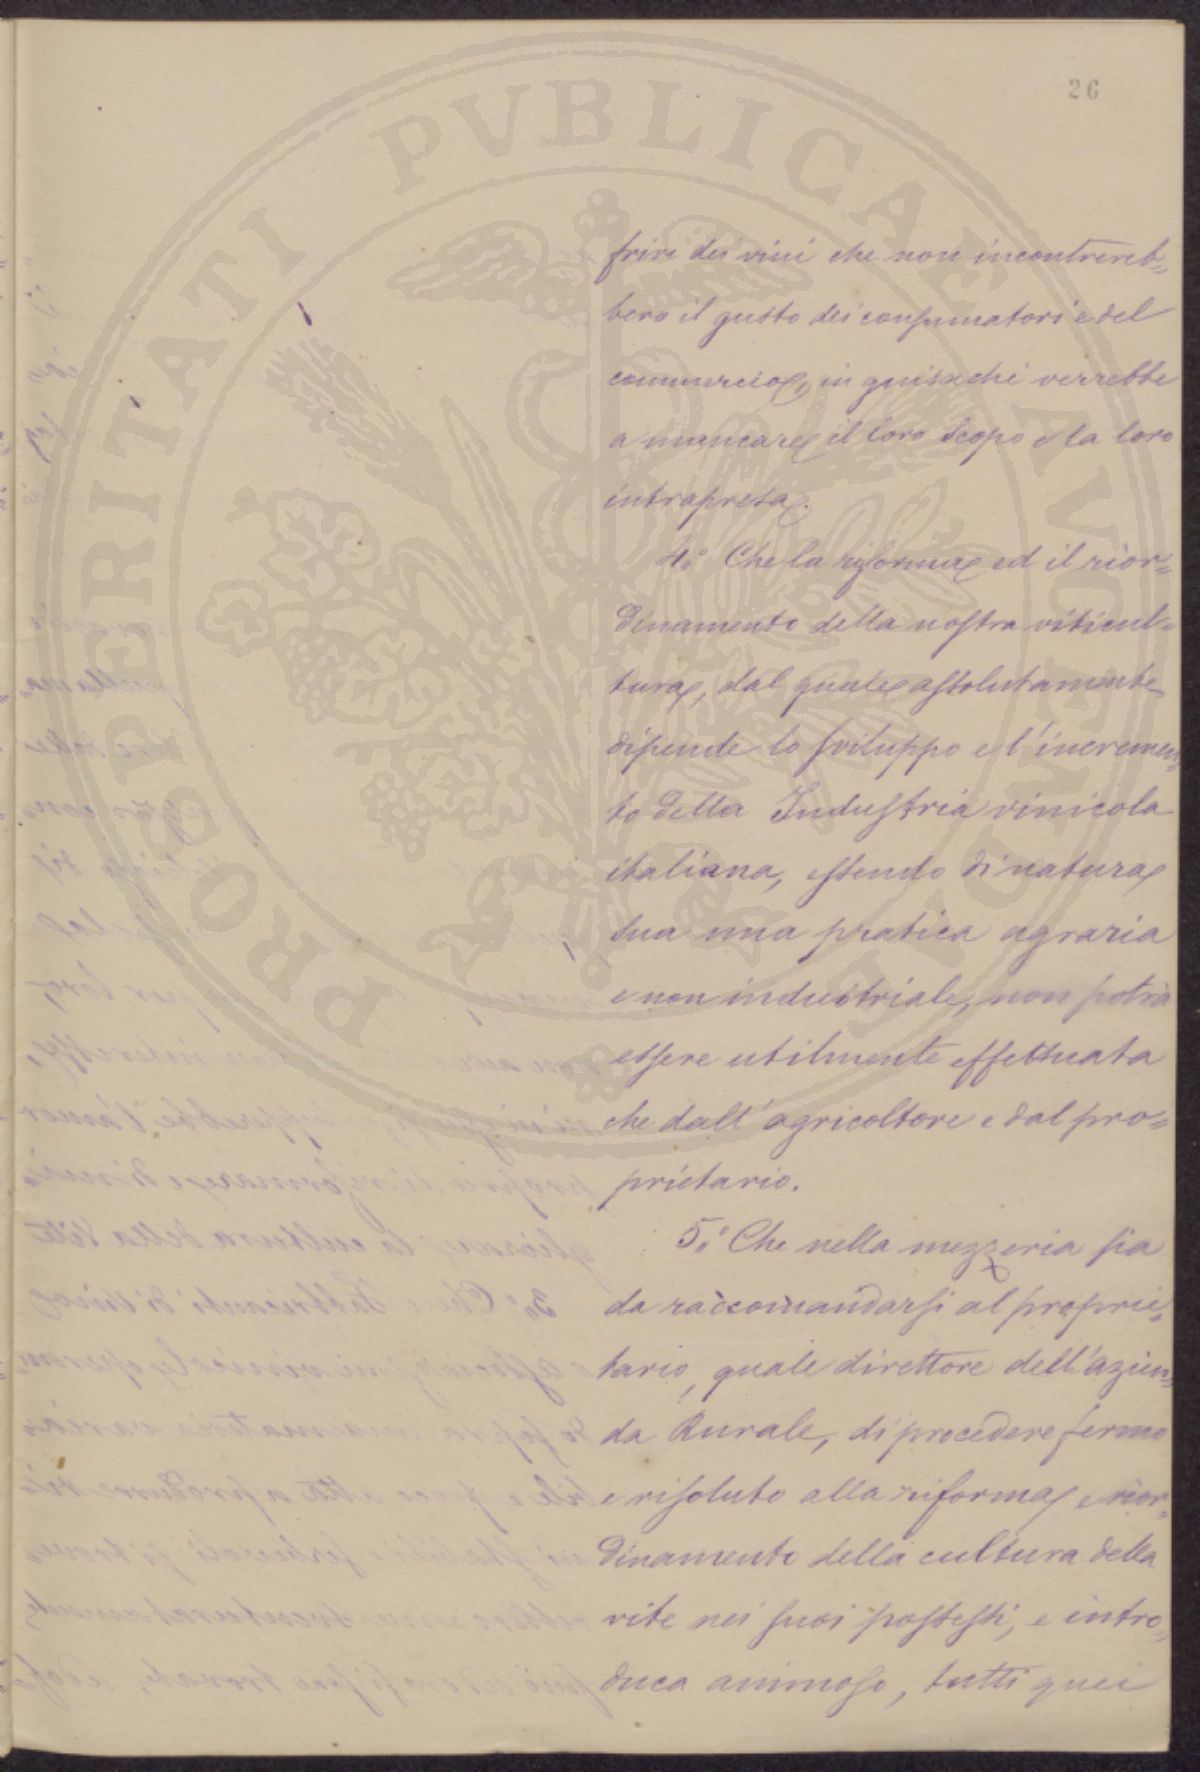 26
PROSPERITATI PUBLICAE AUGENDAE
frire dei vini che non incontrereb=
bero il gusto dei consumatori e del
commercio, in guisa che verrebbe
a mancare il loro scopo e la loro
intrapresa.
4.° Che la riforma ed il rior=
dinamento della nostra viticul=
tura, dal quale assolutamente
dipende lo sviluppo e l'incremen=
to della Industria vinicola
italiana, essendo di natura
sua una pratica agraria
e non industriale, non potrà
essere utilmente effettuata
che dall'agricoltore e dal pro=
prietario.
5.° Che nella mezzeria sia
da raccomandarsi al proprie=
tario, quale direttore dell'azien=
da Rurale, di procedere fermo
e risoluto alla riforma e rior=
dinamento della cultura della
vite nei suoi possessi, e intro=
duca animoso, tutti quei